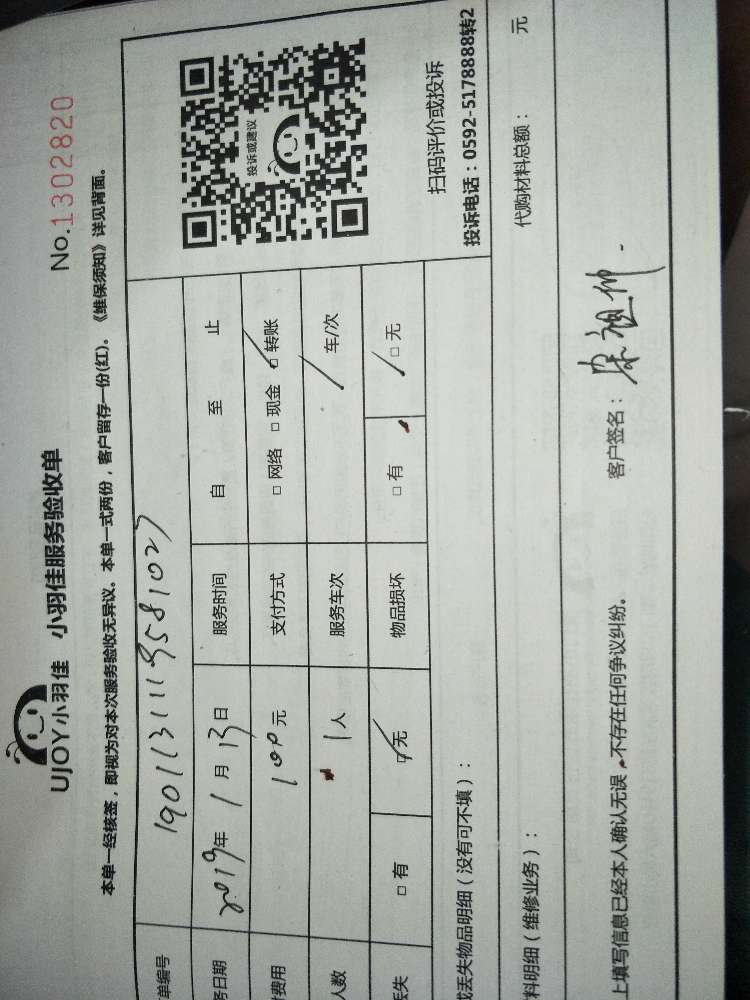 UJOY小羽佳 小羽佳服务验收单
No.1302820
本单一经核签，即视为对本次服务验收无异议。本单一式两份，客户留存一份(红)。《维保须知》详见背面。
单编号 1901131119581027
投诉或建议
务日期 2019年1月13日 服务时间 自 至 止
费用 100元 支付方式 □网络 □现金 □转账
人数 1人 服务车次 / 车/次
丢失 □有 □无 物品损坏 □有 □无
扫码评价或投诉
投诉电话：0592-5178888转2
或丢失物品明细（没有可不填）：
料明细（维修业务）： 代购材料总额： 元
上填写信息已经本人确认无误，不存在任何争议纠纷。 客户签名：